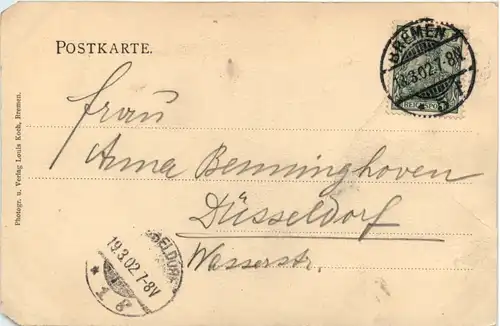 POSTKARTE.
BREMEN
18.3.02.7-8V.
REICHSPOST
Frau
Anna Benninghoven
Düsseldorf
Wasserstr.
DÜSSELDORF
19.3.02.7-8V
* 1 g
Photogr. u. Verlag Louis Koch, Bremen.